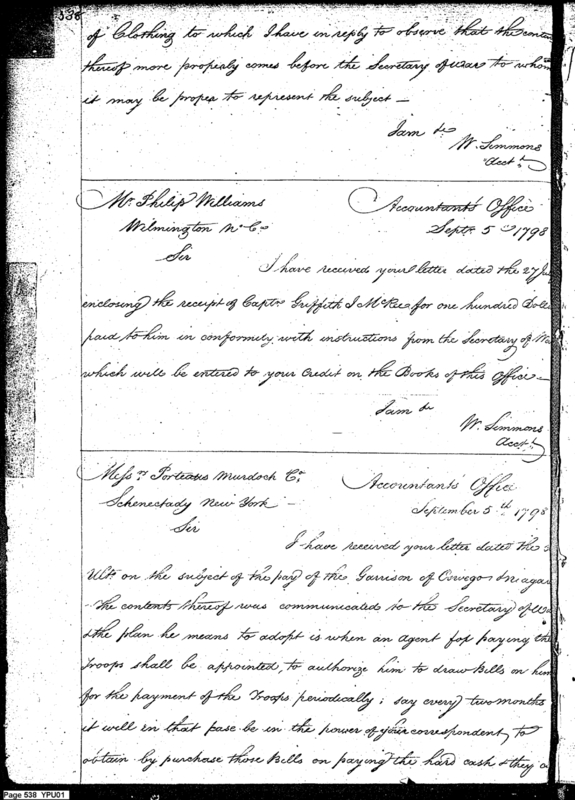 538
of Clothing to which I have in reply to observe that the conten
thereof more properly comes before the Secretary of war to whom
it may be proper to represent the subject —
I am &c
W. Simmons
Acctt.
Mr. Philip Williams
Accountants Office
Wilmington N. Ca
Septr. 5th 1798
Sir
I have received your letter dated the 27
enclosing the receipt of Captn. Griffith J McRee for one hundred Dolla
paid to him in conformity with instructions from the Secretary of Wa
which will be entered to your Credit on the Books of this Office —
I am &c
W. Simmons
Acctt.
Messrs Porteous Murdoch Co.
Accountants Office
Schenectady New York —
September 5th 1798
Sir
I have received your letter dated the
Ulto. on the subject of the pay of the Garrison of Oswego & Niagar
the contents thereof was communicated to the Secretary of Wa
& the plan he means to adopt is when an agent for paying the
Troops shall be appointed, to authorize him to draw Bills on him
for the payment of the Troops periodically; say every two months
it will in that case be in the power of your correspondent, to
obtain by purchase those Bills on paying the hard cash & they
Page 538 YPU01